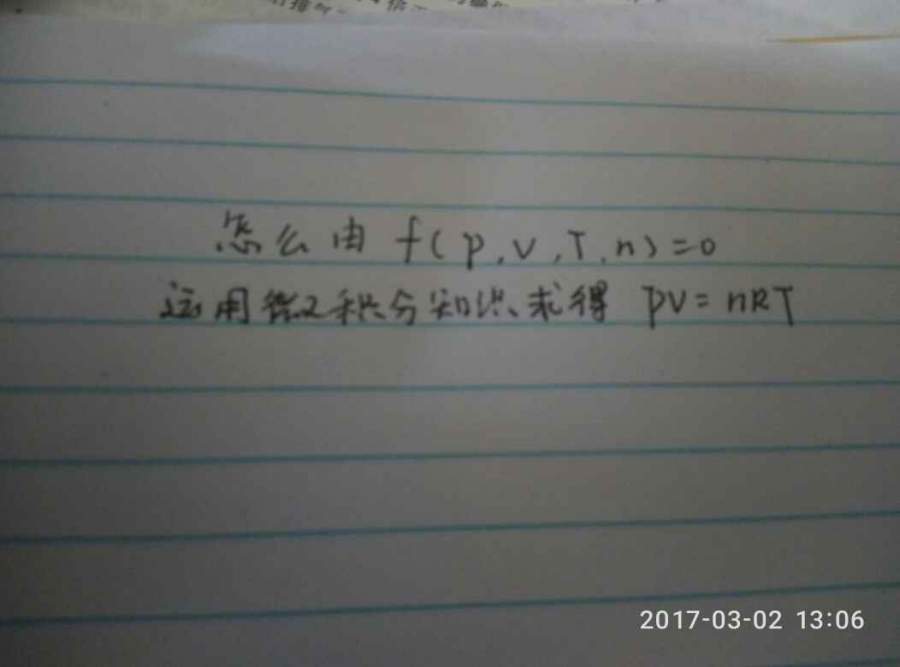 怎么由 f(p,V,T,n)=0
运用微积分知识求得 pV=nRT
2017-03-02 13:06